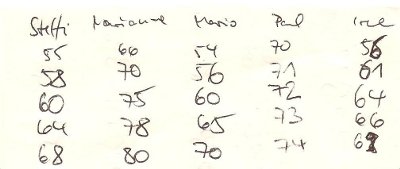 Steffi Marianne Mario Paul
55 66 54 70 56
58 70 56 71 61
60 75 60 72 64
64 78 65 73 66
68 80 70 74